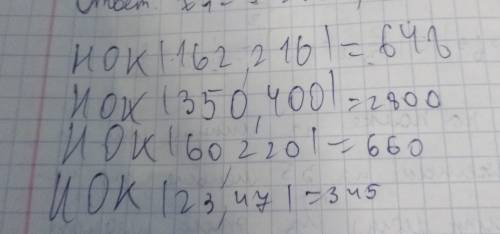 Ответ
НОК |162, 216| = 648
НОК |350, 400| = 2800
НОК |60, 220| = 660
НОК |23, 47| = 345